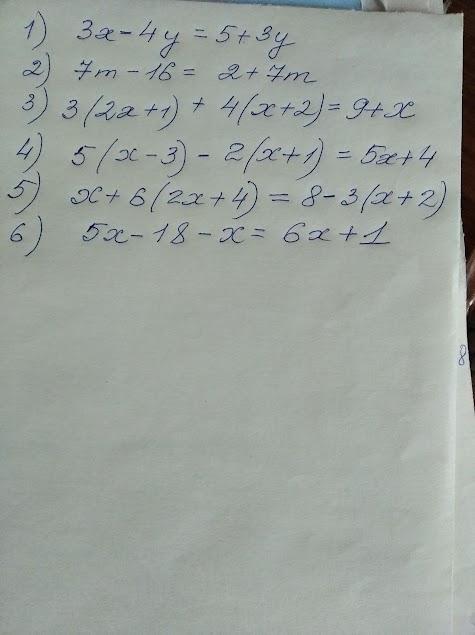 1) 3x - 4y = 5 + 3y
2) 7m - 16 = 2 + 7m
3) 3(2x+1) + 4(x+2) = 9+x
4) 5(x-3) - 2(x+1) = 5x+4
5) x + 6(2x+4) = 8 - 3(x+2)
6) 5x - 18 - x = 6x + 1
8